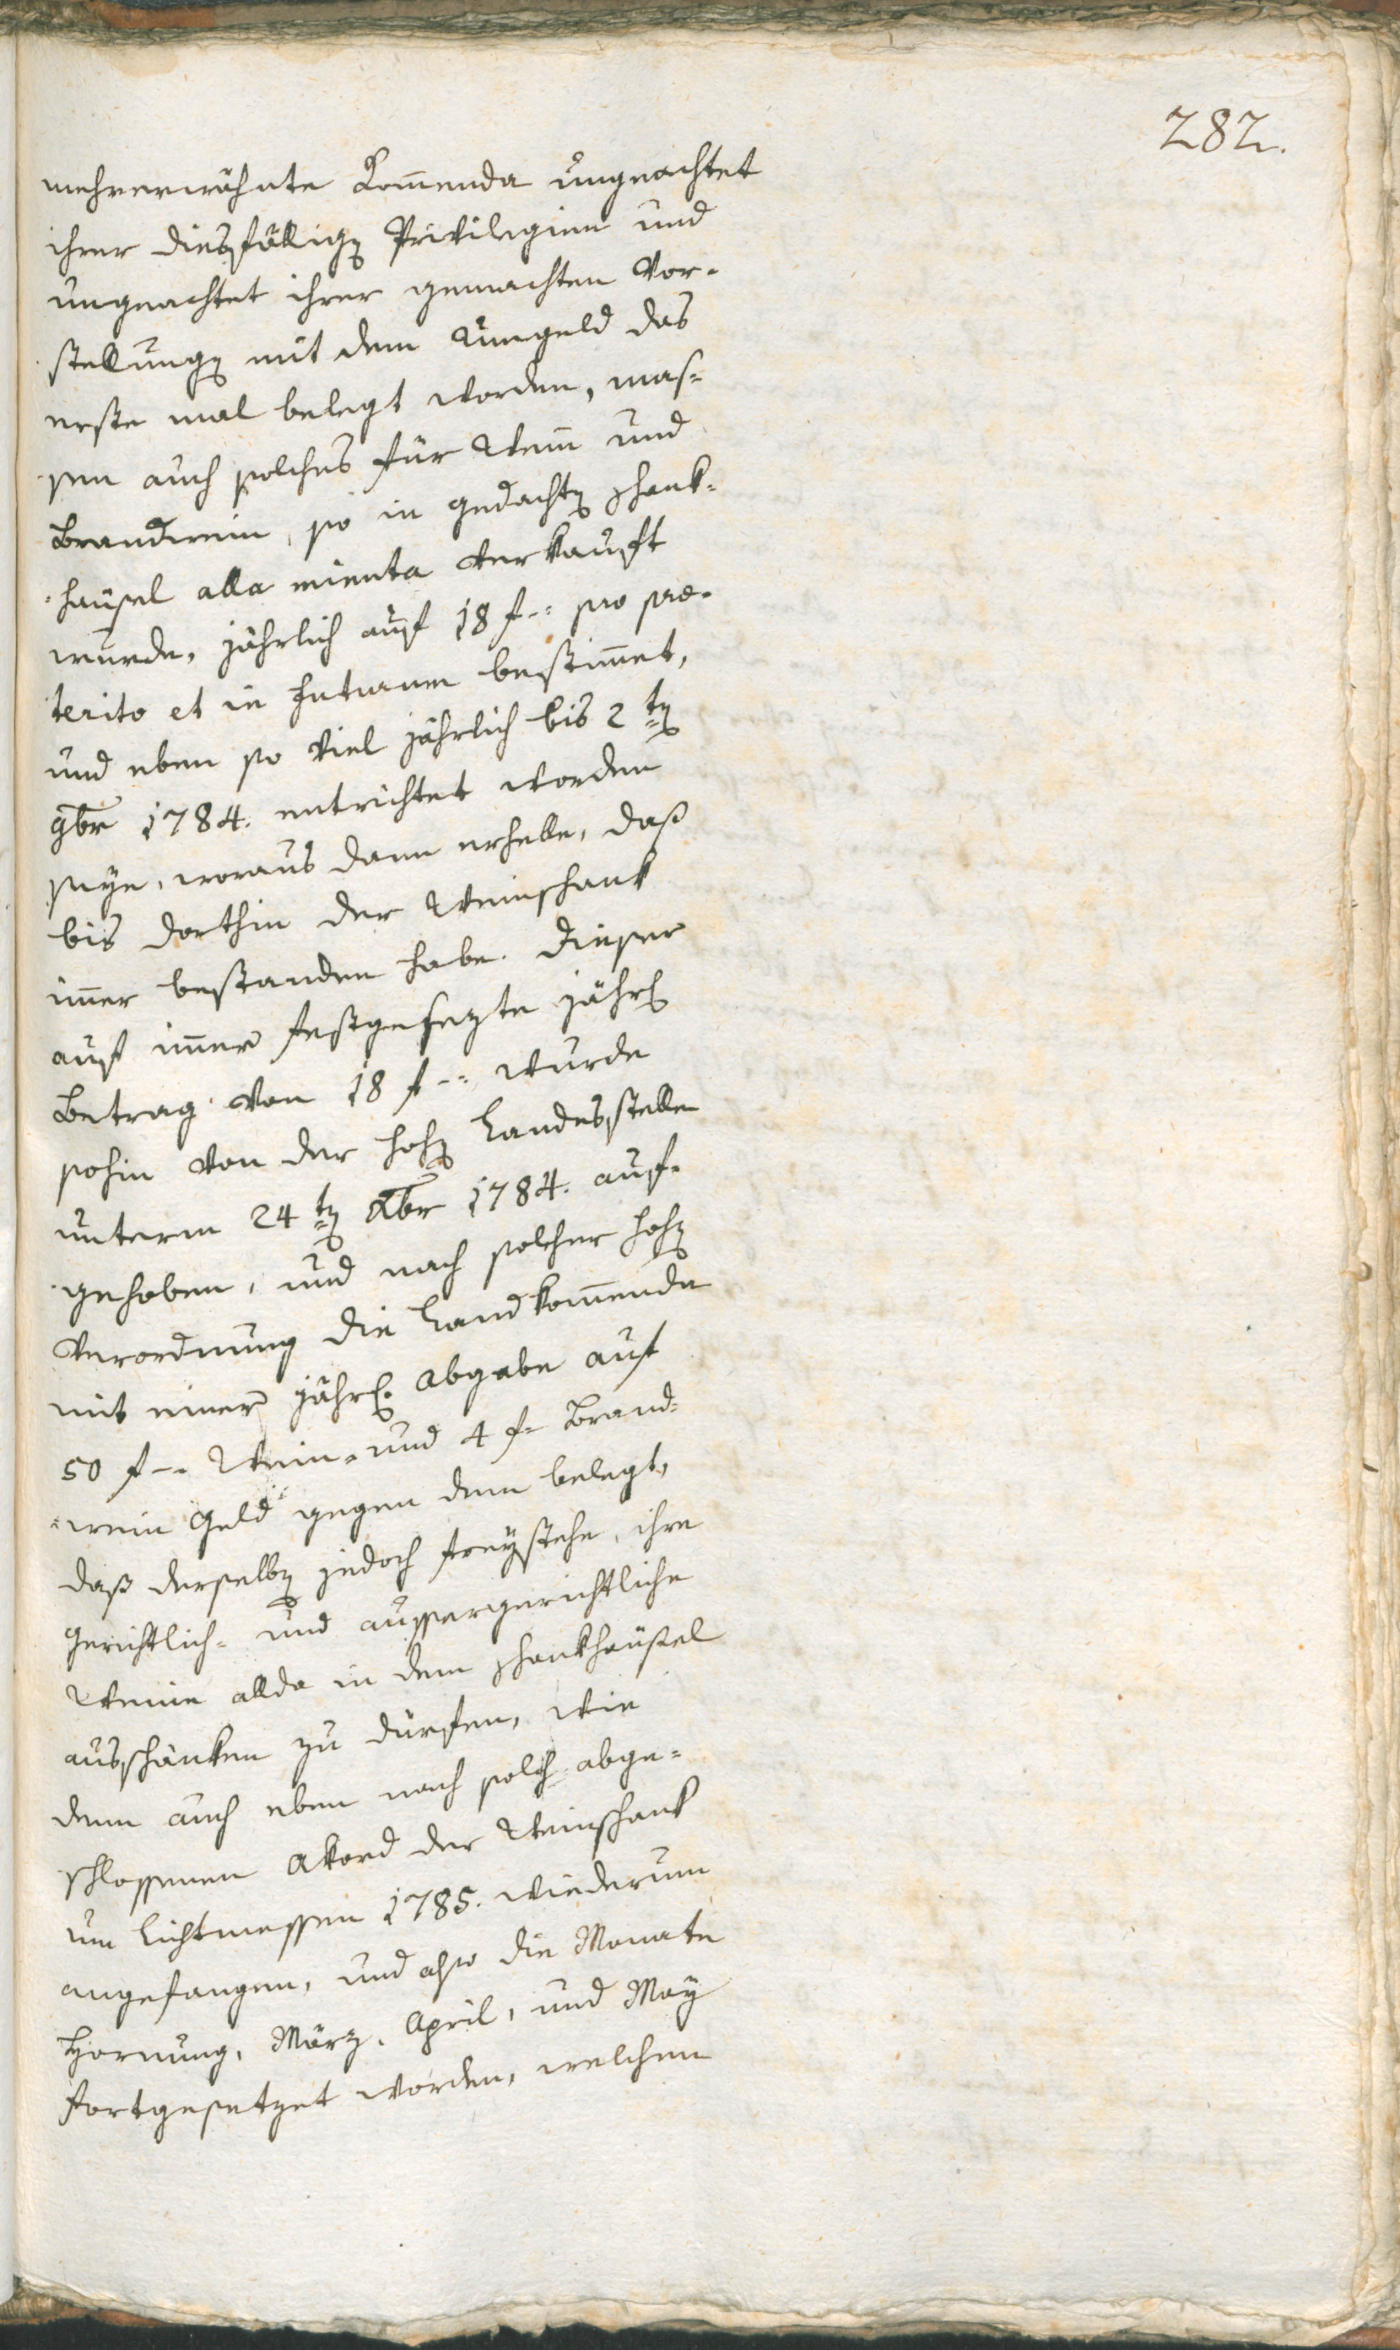 282.
mehrerwähnte Commenda ungeachtet
ihrer diesfällign Privilegien und
ungeachtet ihrer gemachten Vor-
stellungn mit dem Umgeld das
erste mal belegt worden, mas-
sen auch solches für Wein und
Brandwein, so in gedachtn schank-
häusel alla minuta verkauft
wurde, jährlich auf 18 f -: pro prae-
terito et in futurum bestimmet,
und eben so viel jährlich bis 2tn
9br 1784. entrichtet worden
seye, woraus dann erhelle, daß
bis dorthin der Weinschank
immer bestanden habe. Dieser
auf immer festgesezte jährl
Betrag von 18 f -: wurde
sohin von der hohn Landesstelle
unterm 24tn Xbr 1784. auf-
gehoben, und nach solcher hohn
Verordnung die Landkommende
mit einer jährl. Abgabe auf
50 f -: Wein- und 4 f - Brand-
wein Geld gegen dem belegt,
daß derselbn jedoch freystehe, ihre
gerichtlich- und aussergerichtliche
Weine allda in dem schankhäusel
ausschänken zu dürfen, wie
denn auch eben nach solch abge-
schlossenen Akord der Weinschank
um Lichtmessen 1785. wiederum
angefangen, und also die Monate
Hornung, März, April, und May
fortgesetzet worden, welchem